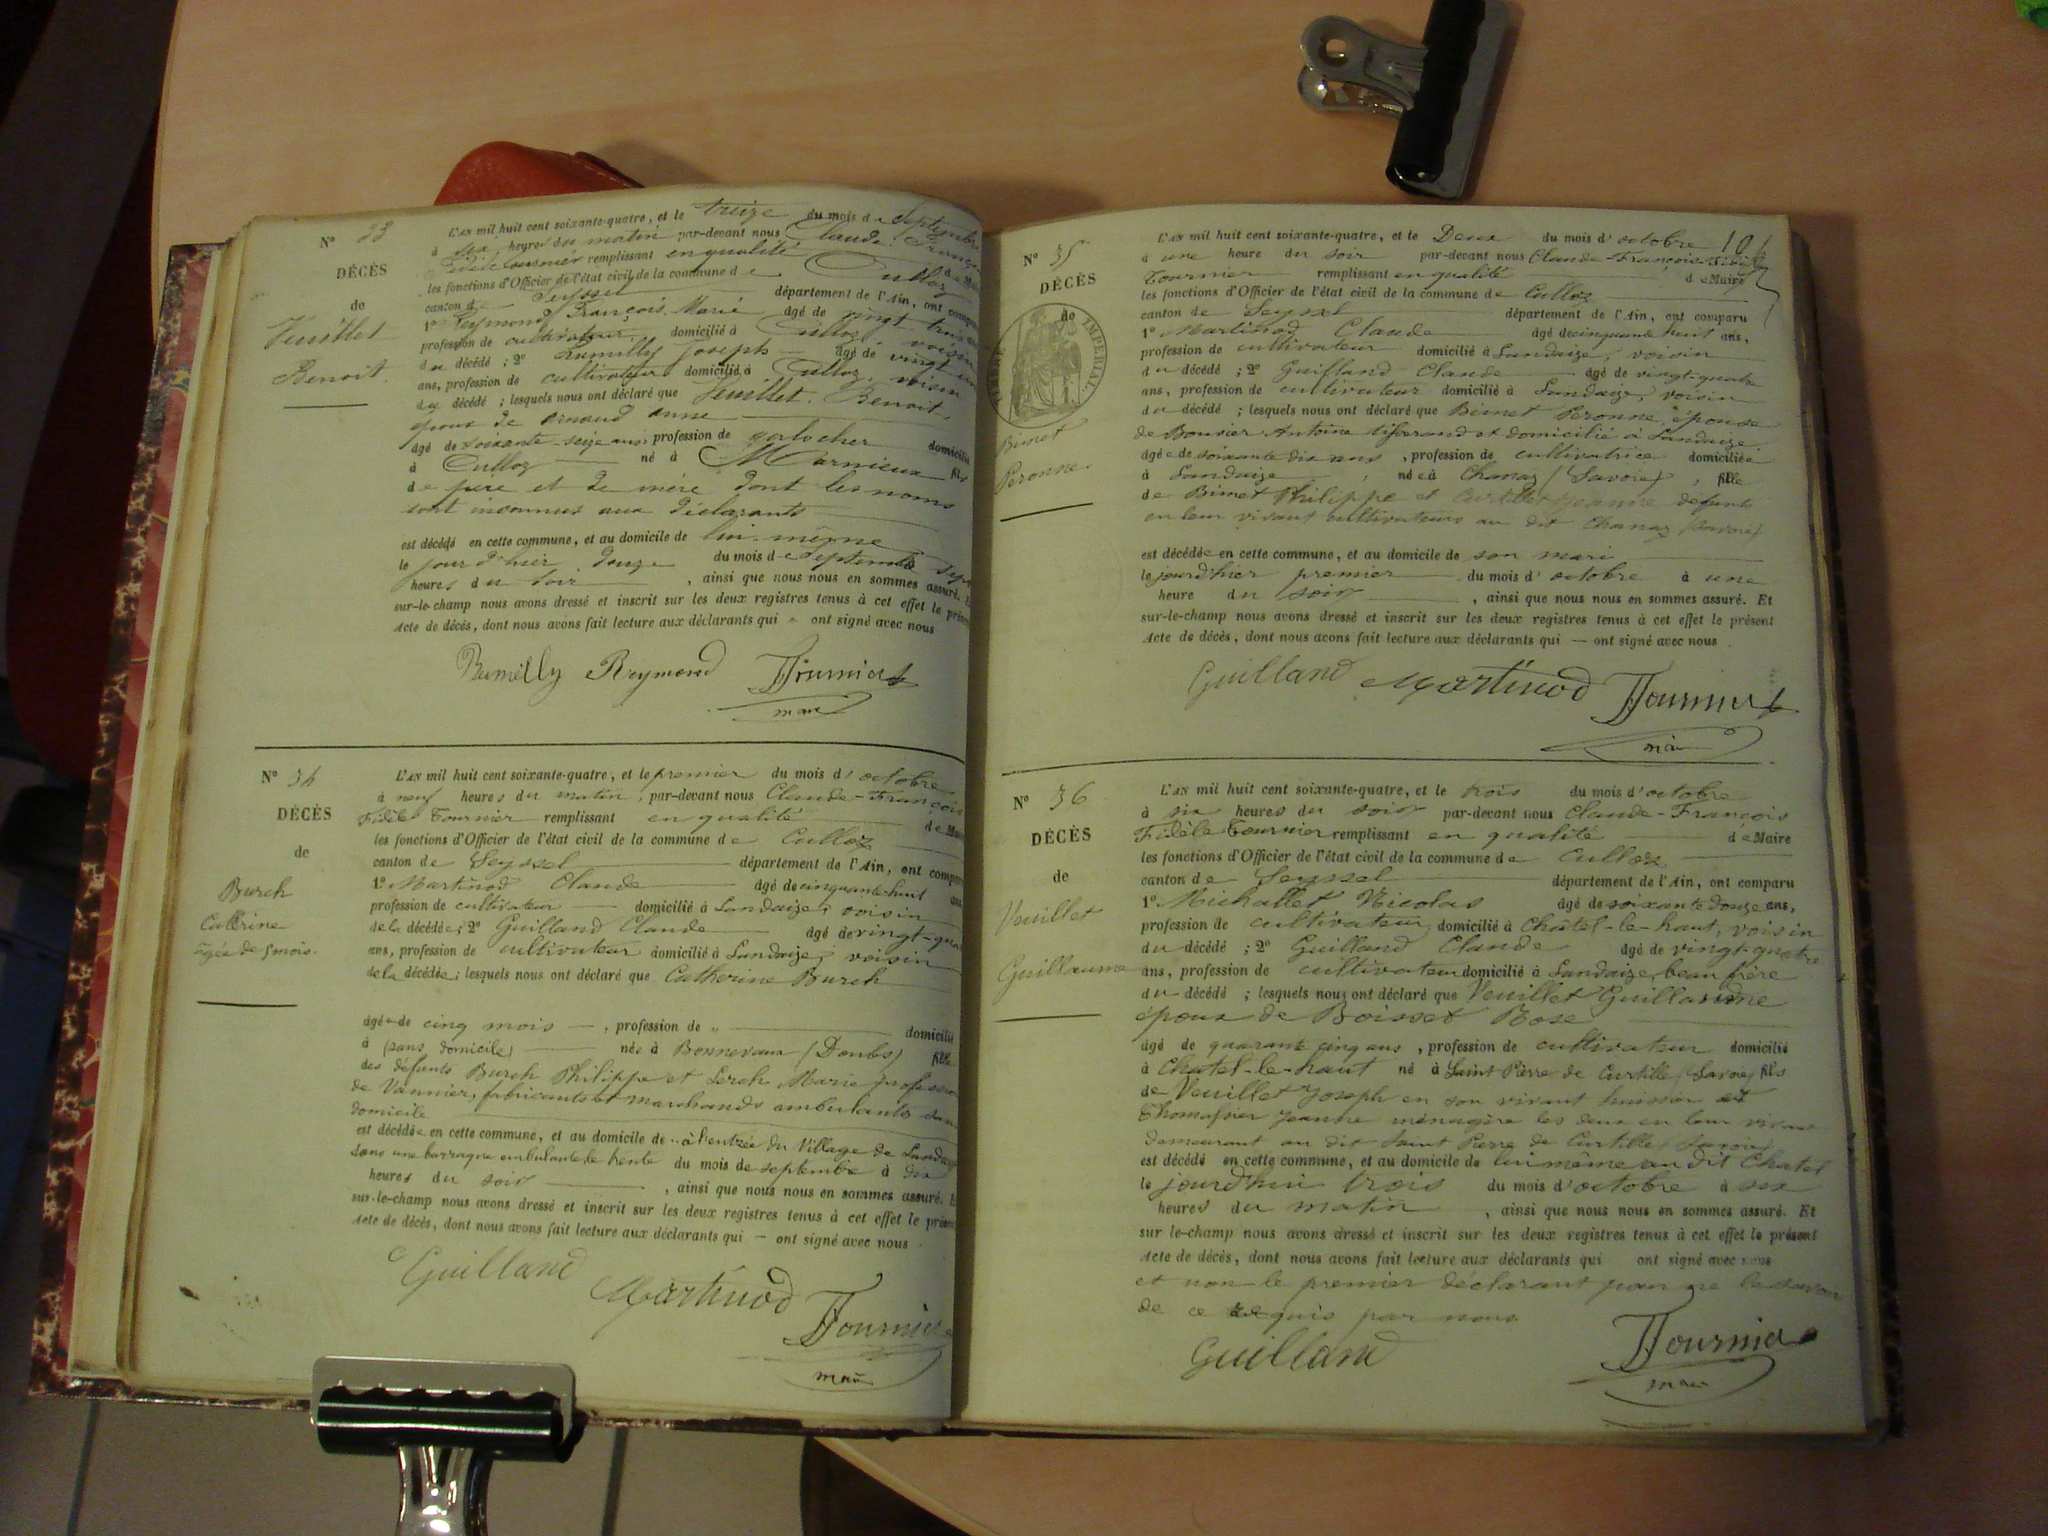 N° 33
DÉCÈS
de
Veuillet
Benoit.
L'AN mil huit cent soixante-quatre, et le treize du mois de septembre
à six heures du matin par-devant nous Claude François
Fidèle Tournier remplissant en qualité de Maire
les fonctions d'Officier de l'état civil de la commune de Culloz
canton de Seyssel département de l'Ain, ont comparu
1° Reymond François Marie âgé de vingt trois
profession de cultivateur domicilié à Culloz voisin
du décédé ; 2° Rumilly Joseph âgé de vingt
ans, profession de cultivateur domicilié à Culloz, voisin
du décédé ; lesquels nous ont déclaré que Veuillet Benoit,
époux de Arnaud anne
âgé de soixante-seize ans profession de domicilié
à Culloz né à Marnieux fils
de père et de mère dont les noms
sont inconnus aux déclarants
est décédé en cette commune, et au domicile de lui-même
le jour d'hier, douze du mois de septembre sept
heures du soir , ainsi que nous nous en sommes assuré. Et
sur-le-champ nous avons dressé et inscrit sur les deux registres tenus à cet effet le présent
Acte de décès, dont nous avons fait lecture aux déclarants qui ont signé avec nous
Rumilly Reymond Tournier
maire
N° 34
DÉCÈS
de
Burch
Cathrine
âgée de 5 mois.
L'AN mil huit cent soixante-quatre, et le premier du mois d'octobre
à neuf heures du matin, par-devant nous Claude-François
Fidèle Tournier remplissant en qualité de Maire
les fonctions d'Officier de l'état civil de la commune de Culloz
canton de Seyssel département de l'Ain, ont comparu
1° Martinod Claude âgé de cinquante-huit ans
profession de cultivateur domicilié à Landaize, voisin
de la décédée ; 2° Guilland Claude âgé de vingt-quatre
ans, profession de cultivateur domicilié à Landaize, voisin
de la décédée ; lesquels nous ont déclaré que Catherine Burch
âgée de cinq mois , profession de „ domicilié
à (sans domicile) née à Bonnevaux (Doubs) fille
des défunts Burch Philippe et Lerch Marie profession
de Vannier, fabricants et marchands ambulants sans
domicile
est décédée en cette commune, et au domicile de à l'entrée du Village de Landaize
dans une barraque ambulante le trente du mois de septembre à dix
heures du soir , ainsi que nous nous en sommes assuré. Et
sur-le-champ nous avons dressé et inscrit sur les deux registres tenus à cet effet le présent
Acte de décès, dont nous avons fait lecture aux déclarants qui — ont signé avec nous
Guilland Martinod Tournier
maire
N° 35
DÉCÈS
de
TIMBRE IMPERIAL
Bimet
Peronne.
L'AN mil huit cent soixante-quatre, et le Deux du mois d'octobre
à une heure du soir par-devant nous Claude-François-Fidèle
Tournier remplissant en qualité de Maire
les fonctions d'Officier de l'état civil de la commune de Culloz
canton de Seyssel département de l'Ain, ont comparu
1° Martinod Claude âgé de cinquante huit ans,
profession de cultivateur domicilié à Landaize, voisin
du décédé ; 2° Guilland Claude âgé de vingt-quatre
ans, profession de cultivateur domicilié à Landaize, voisin
du décédé ; lesquels nous ont déclaré que Bimet Peronne, épouse
de Bouvier Antoine tisserand et domicilié à Landaize
âgée de soixante dix ans , profession de cultivatrice domiciliée
à Landaize , née à Chanaz (Savoie) , fille
de Bimet Philippe et Curtillet Jeanne défunts
en leur vivant cultivateurs au dit Chanaz (Savoie)
est décédée en cette commune, et au domicile de son mari
le jourd'hier premier du mois d'octobre à une
heure du soir , ainsi que nous nous en sommes assuré. Et
sur-le-champ nous avons dressé et inscrit sur les deux registres tenus à cet effet le présent
Acte de décès, dont nous avons fait lecture aux déclarants qui — ont signé avec nous
Guilland Martinod Tournier
maire
N° 36
DÉCÈS
de
Veuillet
Guillaume
L'AN mil huit cent soixante-quatre, et le trois du mois d'octobre
à six heures du soir par-devant nous Claude-François
Fidèle Tournier remplissant en qualité de Maire
les fonctions d'Officier de l'état civil de la commune de Culloz
canton de Seyssel département de l'Ain, ont comparu
1° Michallet Nicolas âgé de soixante douze ans,
profession de cultivateur, domicilié à Châtel-le-haut, voisin
du décédé ; 2° Guilland Claude âgé de vingt-quatre
ans, profession de cultivateur domicilié à Landaize, beau frère
du décédé ; lesquels nous ont déclaré que Veuillet Guillaume
époux de Boisset Rose
âgé de quarante cinq ans , profession de cultivateur domicilié
à Chatel-le-haut né à Saint Pierre de Curtille (Savoie) fils
de Veuillet Joseph en son vivant huissier et
Thomassier Jeanne ménagère les deux en leur vivant
demeurant au dit Saint Pierre de Curtille, Savoie
est décédé en cette commune, et au domicile de lui même au dit Chatel
le jourd'hui trois du mois d'octobre à six
heures du matin , ainsi que nous nous en sommes assuré. Et
sur le-champ nous avons dressé et inscrit sur les deux registres tenus à cet effet le présent
Acte de décès, dont nous avons fait lecture aux déclarants qui ont signé avec nous
et non le premier déclarant pour ne le savoir
de ce requis par nous
Guilland Tournier
maire